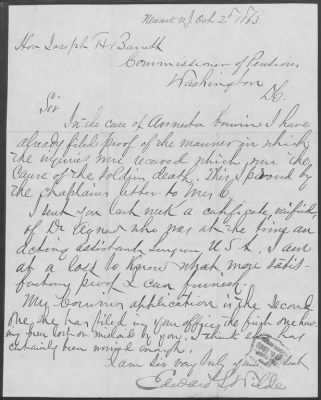 Newark N.J. Oct 2d 1863
Hon Joseph H Barrett
Commissioner of Pensions
Washington
DC
Sir
In the case of I have
already filed proof of the manner in which
the injuries were received which were the
cause of the soldiers death. This I proved by
the chaplains letter to Mrs C
I sent you last week a certificate, verified,
of Dr Agnew who was at the time an
acting assistant Surgeon U.S.A. I am
at a loss to know what more satis-
factory proof I can furnish.
My application is the second
one, she has filed in your office the first one hav-
ing been lost or mislaid by you. I think she has
certainly been enough.
I am Sir very truly
Edward